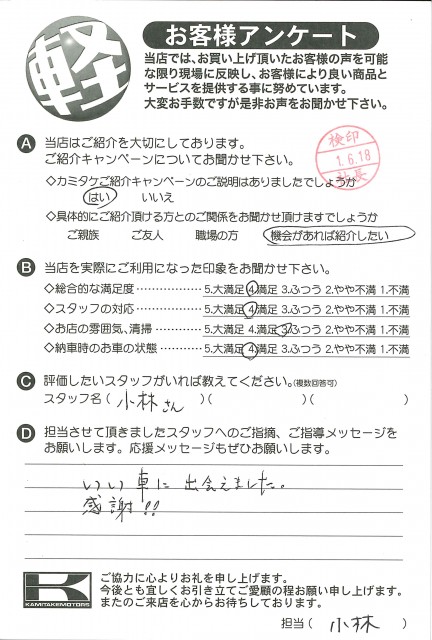 軽
お客様アンケート
当店では、お買い上げ頂いたお客様の声を可能
な限り現場に反映し、お客様により良い商品と
サービスを提供する事に努めています。
大変お手数ですが是非お声をお聞かせ下さい。
A 当店はご紹介を大切にしております。
ご紹介キャンペーンについてお聞かせ下さい。
検印
1.6.18
社長
◇カミタケご紹介キャンペーンのご説明はありましたでしょうか
はい いいえ
◇具体的にご紹介頂ける方とのご関係をお聞かせ頂けますでしょうか
ご親族 ご友人 職場の方 機会があれば紹介したい
B 当店を実際にご利用になった印象をお聞かせ下さい。
◇総合的な満足度 ⋯⋯⋯⋯⋯ 5.大満足 4.満足 3.ふつう 2.やや不満 1.不満
◇スタッフの対応 ⋯⋯⋯⋯⋯ 5.大満足 4.満足 3.ふつう 2.やや不満 1.不満
◇お店の雰囲気、清掃 ⋯⋯⋯ 5.大満足 4.満足 3.ふつう 2.やや不満 1.不満
◇納車時のお車の状態 ⋯⋯⋯ 5.大満足 4.満足 3.ふつう 2.やや不満 1.不満
C 評価したいスタッフがいれば教えてください。(複数回答可)
スタッフ名 ( 小林さん )( )( )
D 担当させて頂きましたスタッフへのご指摘、ご指導メッセージを
お願いします。応援メッセージもぜひお願いします。
いい車に出会えました。
感謝!!
K
KAMITAKEMOTORS
ご協力に心よりお礼を申し上げます。
今後とも宜しくお引き立てご愛顧の程お願い申し上げます。
またのご来店を心からお待ちしております。
担当 ( 小林 )